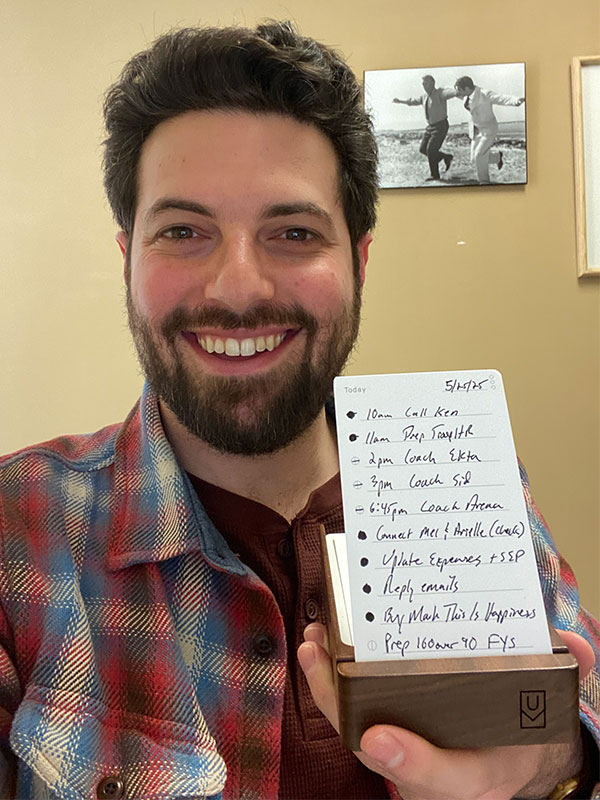 Today 5/25/25
10am Call Ken
11am Prep
2pm Coach Ekta
3pm Coach Sid
6:45pm Coach Arena
Connect Mel & Arielle (check)
Update Expenses + SEP
Reply emails
Buy Mark This Is Happiness
Prep 160over90 FYS